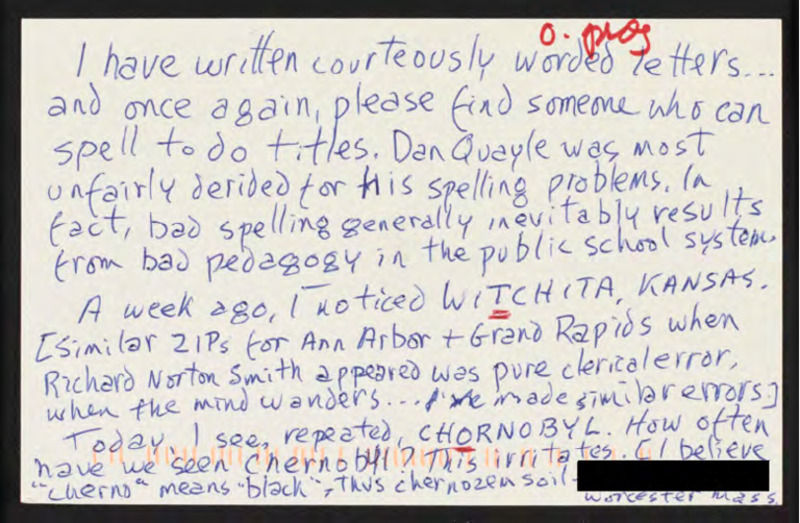 O. prog
I have written courteously worded letters...
and once again, please find someone who can
spell to do titles. Dan Quayle was most
unfairly derided for his spelling problems. In
fact, bad spelling generally inevitably results
from bad pedagogy in the public school system.
A week ago, I noticed WITCHITA, KANSAS.
[Similar ZIPs for Ann Arbor + Grand Rapids when
Richard Norton Smith appeared was pure clerical error,
when the mind wanders... I've made similar errors.]
Today, I see, repeated, CHORNOBYL. How often
have we seen Chernobyl? This irritates. [I believe
"cherno" means "black", thus chernozen soil-
Worcester Mass.